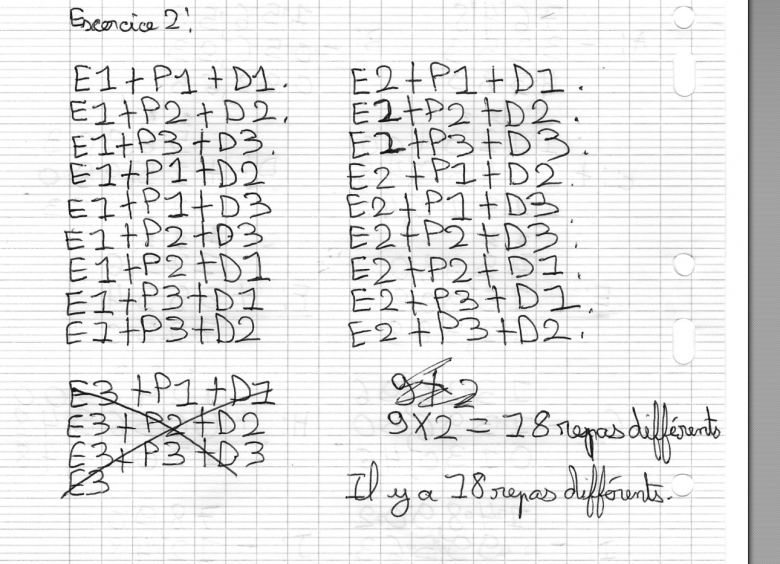 Exercice 2:
E1+P1+D1.
E1+P2+D2.
E1+P3+D3.
E1+P1+D2
E1+P1+D3
E1+P2+D3
E1+P2+D1
E1+P3+D1
E1+P3+D2
E2+P1+D1.
E2+P2+D2.
E2+P3+D3.
E2+P1+D2.
E2+P1+D3
E2+P2+D3.
E2+P2+D1.
E2+P3+D1.
E2+P3+D2.
E3+P1+D1
E3+P2+D2
E3+P3+D3
E3
9+2
9×2=18 repas différents
Il y a 18 repas différents.